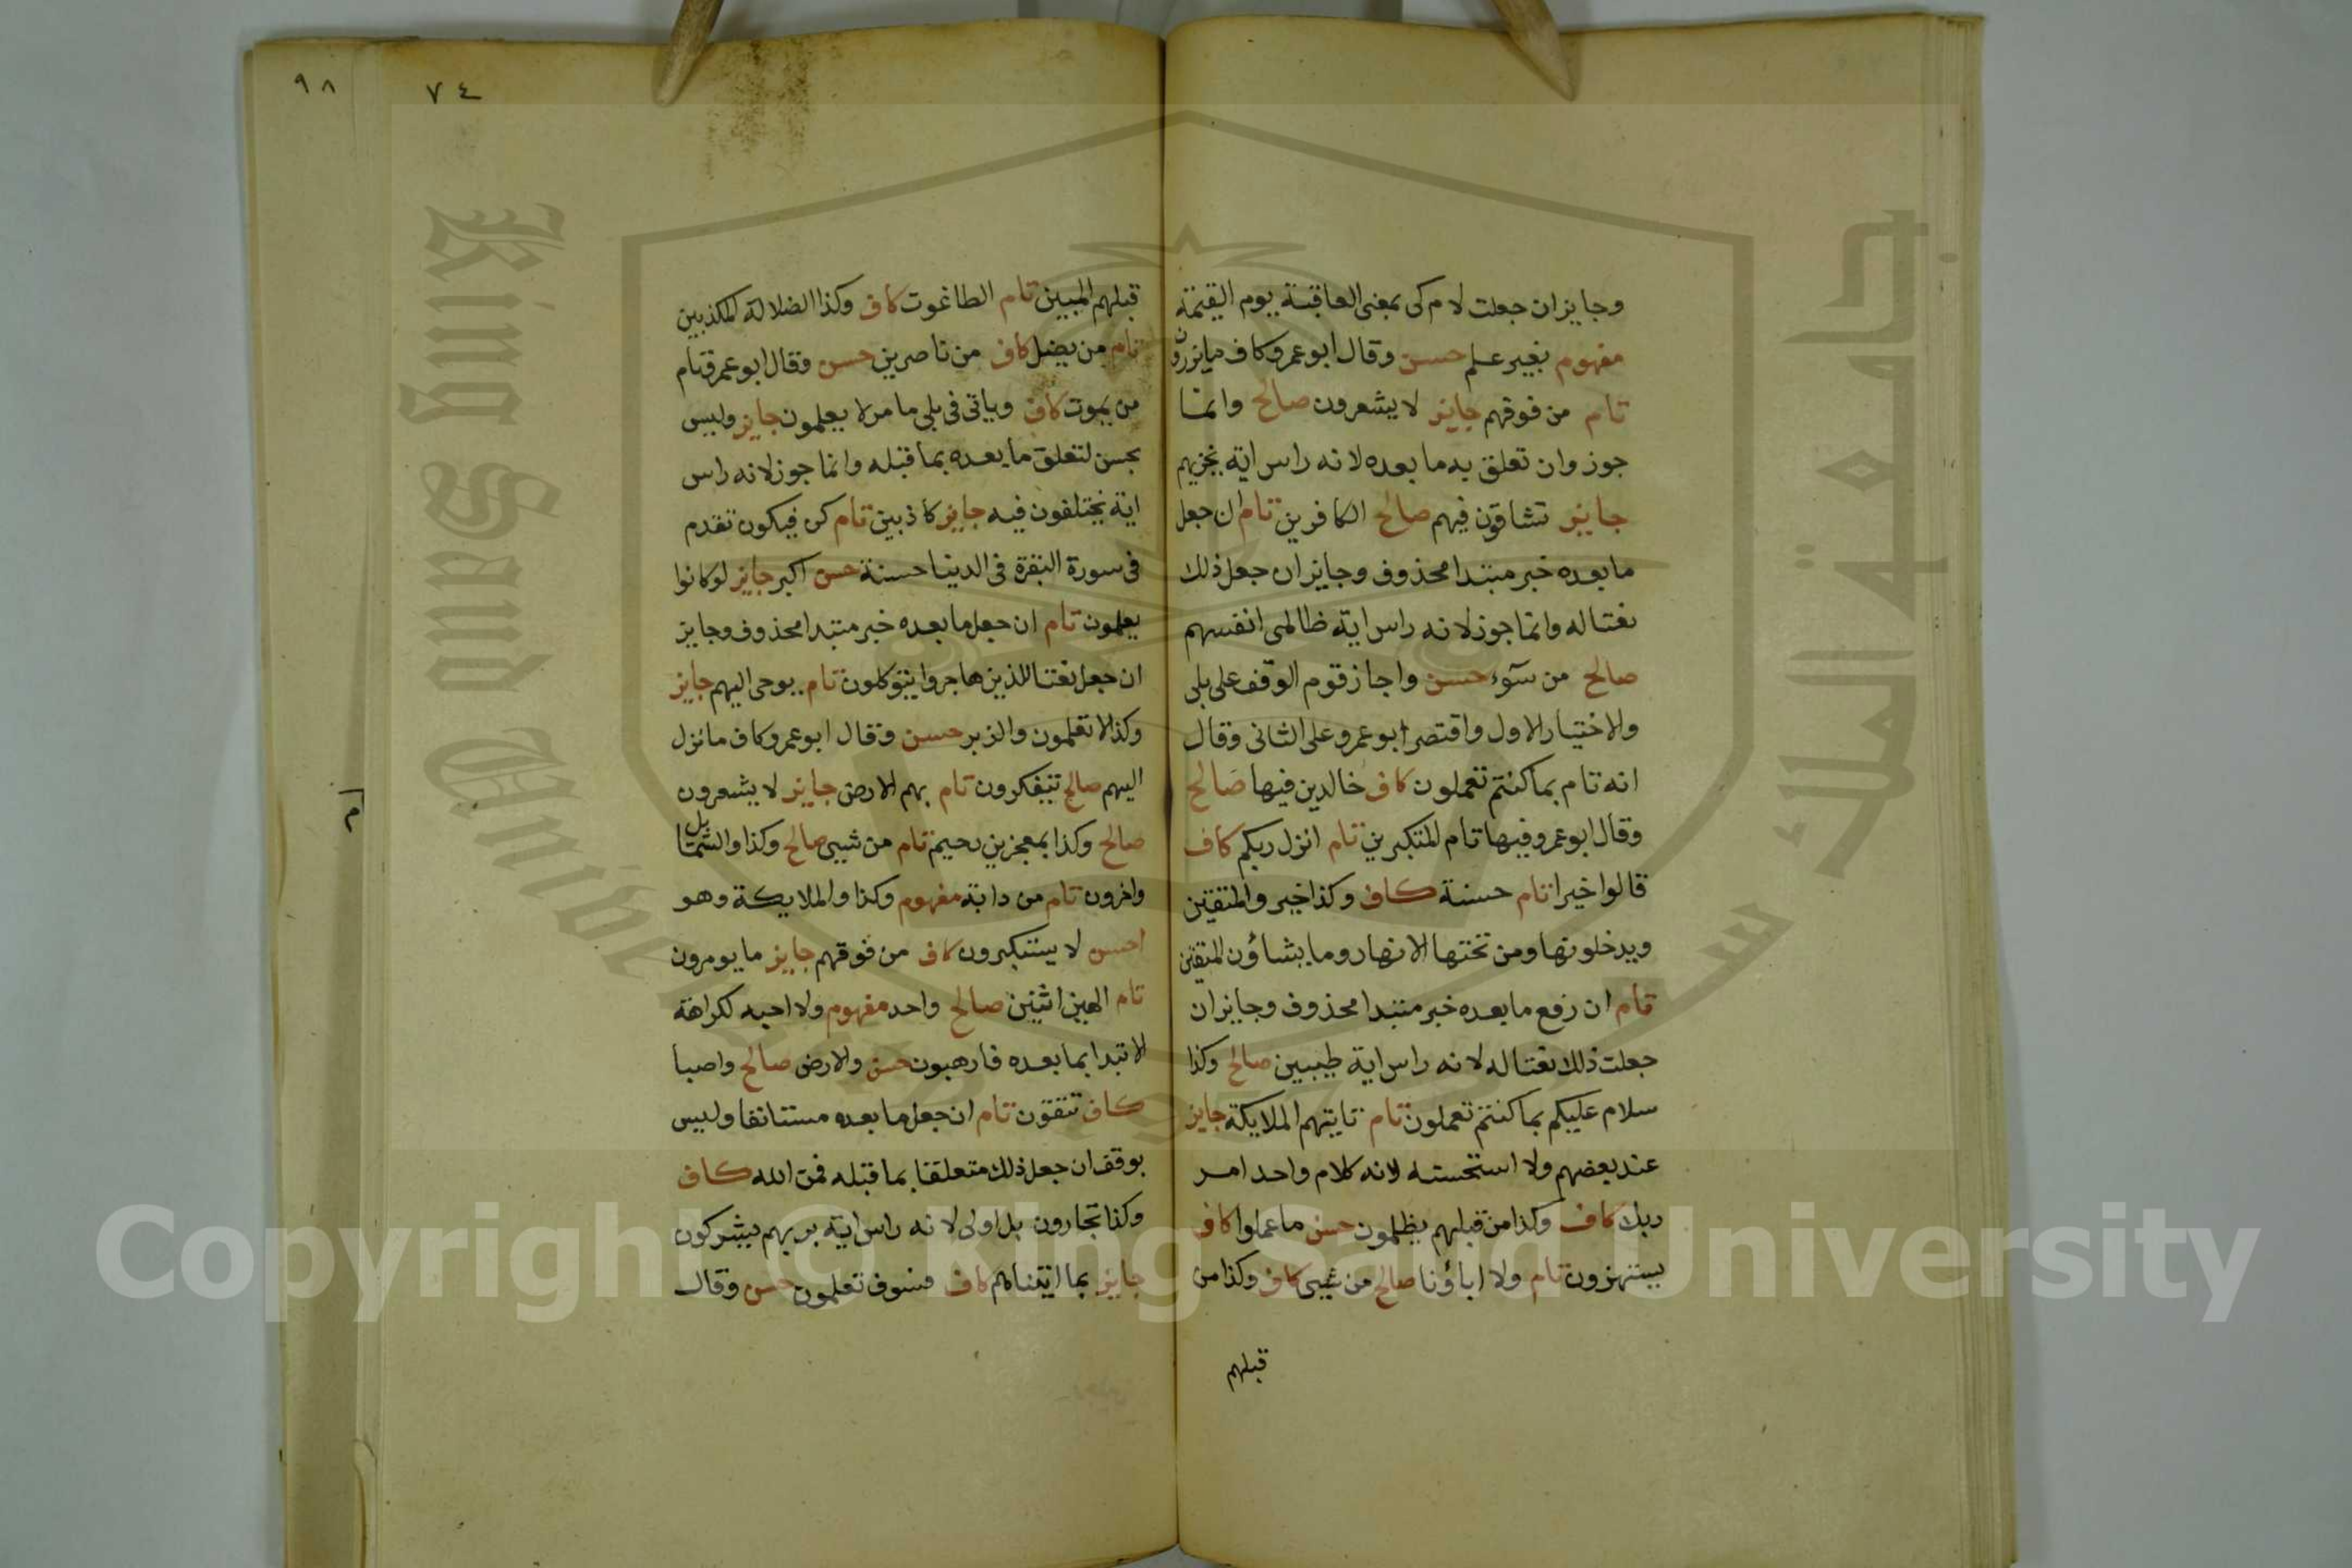 وجايزان جعلت لام كى بمعنى العاقبة يوم القيمة
مفهوم بغير علم حسن وقال ابو عمرو كاف مايزرون
تام من فوقهم جايز لا يشعرون صالح وانما
جوز وان تعلق به ما بعده لانه راس اية يخزيهم
جايز تشاقون فيهم صالح الكافرين تام ان جعل
ما بعده خبر مبتدا محذوف وجايزان جعل ذلك
نعتا له وانما جوز لانه راس اية ظالمى انفسهم
صالح من سوء حسن واجاز قوم الوقف على بلى
والاختيار الاول واقتصر ابو عمرو على الثانى وقال
انه تام بما كنتم تعملون كاف خالدين فيها صالح
وقال ابو عمرو فيها تام المتكبرين تام انزل ربكم كاف
قالوا خيرا تام حسنة كاف وكذا خير والمتقين
ويدخلونها ومن تحتها الانهار وما يشاؤن المتقين
تام ان رفع ما بعده خبر مبتدا محذوف وجايزان
جعلت ذلك نعتا له لانه راس اية طيبين صالح وكذا
سلام عليكم بما كنتم تعملون تام تايتهم الملايكة جايز
عند بعضهم ولا استحسنه لانه كلام واحد امر
ربك كاف وكذا من قبلهم يظلمون حسن ما عملوا كاف
يستهزون تام ولا اباؤنا صالح من شيى كاف وكذا من
قبلهم
٧٤
٩٨
قبلهم المبين تام الطاغوت كاف وكذا الضلالة المكذبين
تام من يضل كاف من ناصرين حسن وقال ابو عمرو تام
من يموت كاف وياتى فى بلى ما مر لا يعلمون جايز وليس
بحسن لتعلق ما بعده بما قبله وانما جوز لانه راس
اية يختلفون فيه جايز كاذبين تام كن فيكون تقدم
فى سورة البقرة فى الدنيا حسنة حسن اكبر جايز لو كانوا
يعلمون تام ان جعل ما بعده خبر مبتدا محذوف وجايز
ان جعل نعتا للذين هاجروا يتوكلون تام يوحى اليهم جايز
وكذا لا تعلمون والزبر حسن وقال ابو عمرو كاف ما نزل
اليهم صالح يتفكرون تام بهم الارض جايز لا يشعرون
صالح وكذا بمعجزين رحيم تام من شيى صالح وكذا والشمايل
واخرون تام من دابة مفهوم وكذا والملايكة وهو
احسن لا يستكبرون كاف من فوقهم جايز ما يومرون
تام الهين اثنين صالح واحد مفهوم ولا احبه لكراهة
الابتدا بما بعده فارهبون حسن والارض صالح واصبا
كاف تتقون تام ان جعل ما بعده مستانفا وليس
بوقف ان جعل ذلك متعلقا بما قبله فمن الله كاف
وكذا تجارون بل اولى لانه راس اية بربهم يشركون
جايز بما اتيناهم كاف فسوف تعلمون حسن وقال
Copyright © King Saud University
King Saud University
جامعة الملك سعود